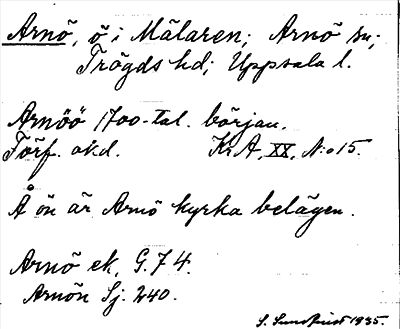 Arnö, ö i Mälaren; Arnö sn;
Trögds hd; Uppsala l.
Arnöö 1700-tal. början.
Förf. okd. KrA, XX, N:o 15.
Å ön är Arnö kyrka belägen.
Arnö ek, G. 74.
Arnön Sj. 240.
S. Sundkvist 1935.